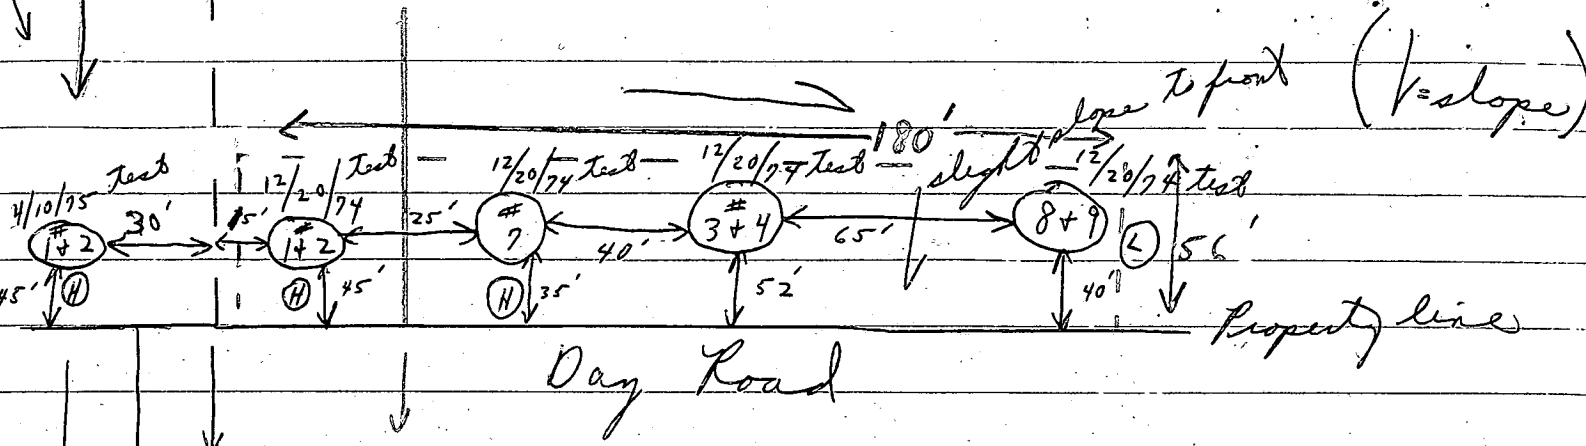 to front
(↓ = slope)
180'
slight slope
4/10/75 test
12/20/74 test
12/20/74 test
12/20/74 test
12/20/74 test
# 1+2
30'
15'
# 1+2
25'
# 7
40'
# 3+4
65'
8+9
L
56'
45'
H
H
45'
H
35'
52'
40'
Property line
Day Road